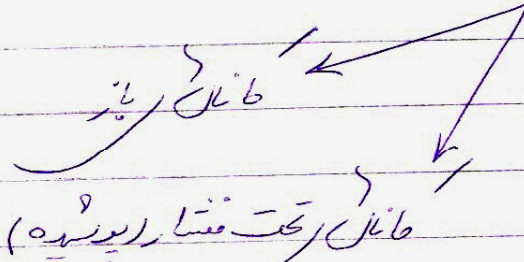 کانالهای باز
کانالهای تحت فشار (پوشیده)